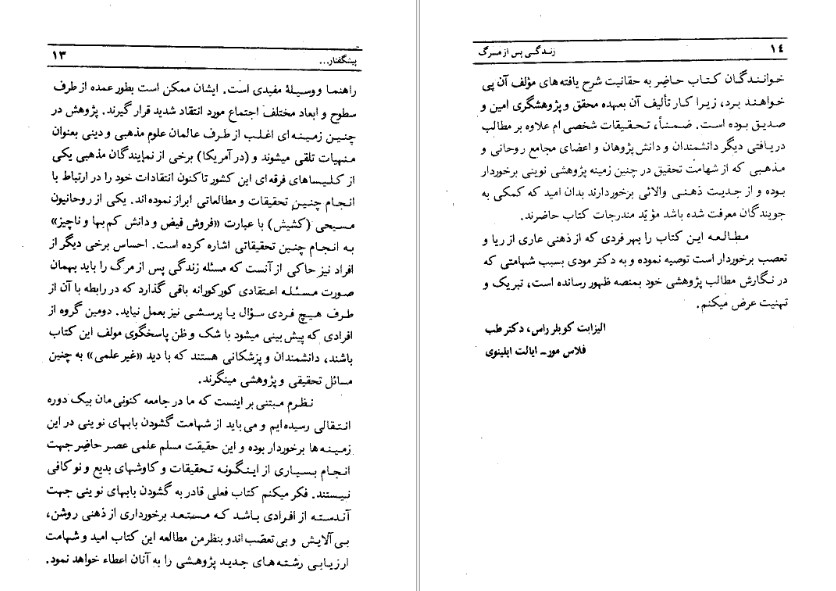 پیشگفتار... ۱۳
راهنما و وسیلهٔ مفیدی است. ایشان ممکن است بطور عمده از طرف
سطوح و ابعاد مختلف اجتماع مورد انتقاد شدید قرار گیرند. پژوهش در
چنین زمینه‌ای اغلب از طرف عالمان علوم مذهبی و دینی بعنوان
منهیات تلقی میشوند و (در آمریکا) برخی از نمایندگان مذهبی یکی
از کلیساهای فرقه‌ای این کشور تاکنون انتقادات خود را در ارتباط با
انجام چنین تحقیقات و مطالعاتی ابراز نموده‌اند. یکی از روحانیون
مسیحی (کشیش) با عبارت «فروش فیض و دانش کم‌بها و ناچیز»
به انجام چنین تحقیقاتی اشاره کرده است. احساس برخی دیگر از
افراد نیز حاکی از آنست که مسئله زندگی پس از مرگ را باید بهمان
صورت مسئله اعتقادی کورکورانه باقی گذارد که در رابطه با آن از
طرف هیچ فردی سؤال یا پرسشی نیز بعمل نیاید. دومین گروه از
افرادی که پیش‌بینی میشود با شک و ظن پاسخگوی مولف این کتاب
باشند، دانشمندان و پزشکانی هستند که با دید «غیر علمی» به چنین
مسائل تحقیقی و پژوهشی مینگرند.
نظرم مبتنی بر اینست که ما در جامعه کنونی‌مان بیک دوره
انتقالی رسیده‌ایم و می‌باید از شهامت گشودن بابهای نوینی در این
زمینه‌ها برخوردار بوده و این حقیقت مسلم علمی عصر حاضر جهت
انجام بسیاری از اینگونه تحقیقات و کاوشهای بدیع و نو کافی
نیستند. فکر میکنم کتاب فعلی قادر به گشودن بابهای نوینی جهت
آندسته از افرادی باشد که مستعد برخورداری از ذهنی روشن،
بی‌آلایش و بی‌تعصّب اند و بنظر من مطالعه این کتاب امید و شهامت
ارزیابی رشته‌های جدید پژوهشی را به آنان اعطاء خواهد نمود.
۱٤ زندگی پس از مرگ
خوانندگان کتاب حاضر به حقانیت شرح یافته‌های مؤلف آن پی
خواهند برد، زیرا کار تألیف آن بعهده محقق و پژوهشگری امین و
صدیق بوده است. ضمناً، تحقیقات شخصی ام علاوه بر مطالب
دریافتی دیگر دانشمندان و دانش پژوهان و اعضای مجامع روحانی و
مذهبی که از شهامت تحقیق در چنین زمینه پژوهشی نوینی برخوردار
بوده و از جدیت ذهنی والائی برخوردارند بدان امید که کمکی به
جویندگان معرفت شده باشد مؤیّد مندرجات کتاب حاضرند.
مطالعه این کتاب را بهر فردی که از ذهنی عاری از ریا و
تعصب برخوردار است توصیه نموده و به دکتر مودی بسبب شهامتی که
در نگارش مطالب پژوهشی خود بمنصه ظهور رسانده است، تبریک و
تهنیت عرض میکنم.
الیزابت کوبلر راس، دکتر طب
فلاس مور ـ ایالت ایلینوی